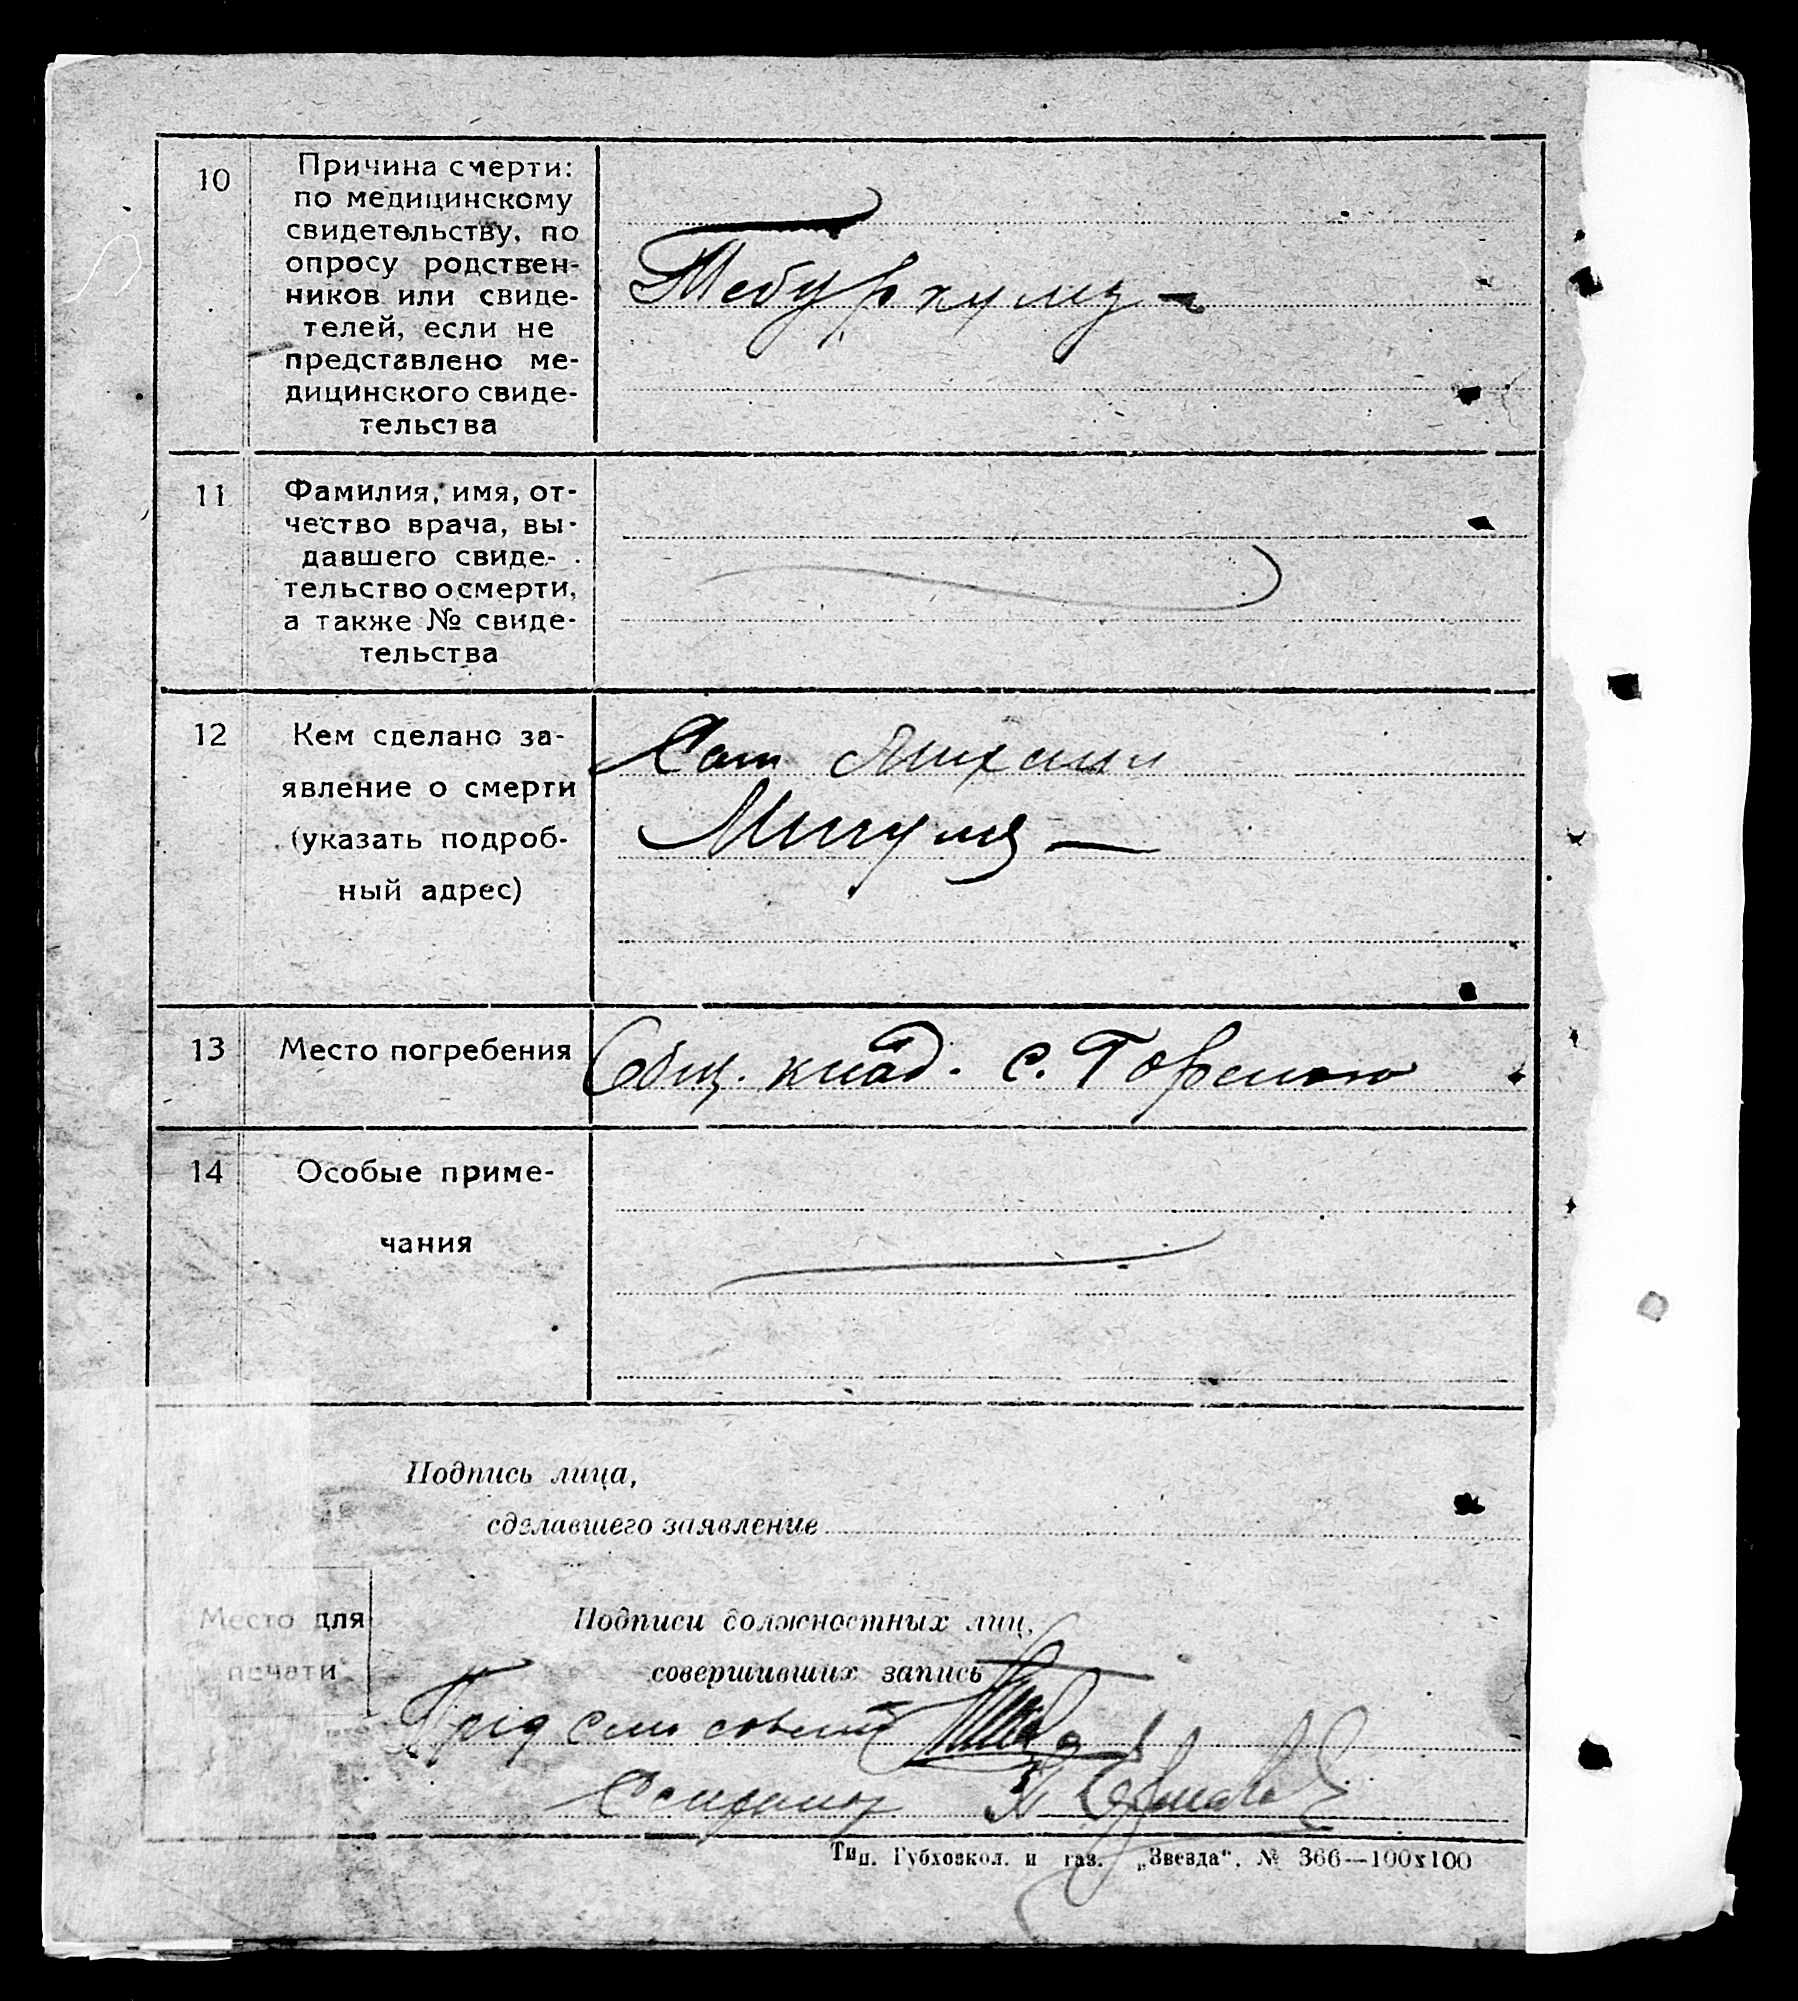 10
Причина смерти:
по медицинскому
свидетельству, по
опросу родствен-
ников или свиде-
телей, если не
представлено ме-
дицинского свиде-
тельства
Тебуркулез
11
Фамилия, имя, от-
чество врача, вы-
давшего свиде-
тельство о смерти,
а также № свиде-
тельства
12
Кем сделано за-
явление о смерти
(указать подроб-
ный адрес)
Михаил
13
Место погребения
Общ. клад. с. Горского
14
Особые приме-
чания
Подпись лица,
сделавшего заявление
Место для
печати
Подписи должностных лиц,
совершивших запись
Пред сель совета
Секретарь
Тип. Губхозкол. и газ. „Звезда“. № 366—100х100